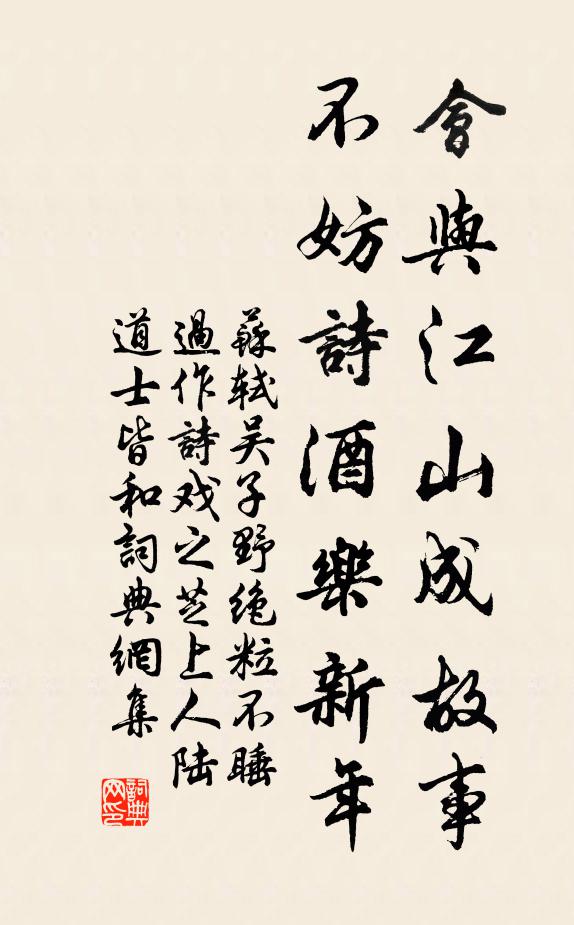 會與江山成故事
不妨詩酒樂新年
蘇軾吴子野絶粒不睡
過作詩戏之芝上人陆
道士皆和詞典網集
詞典
网印